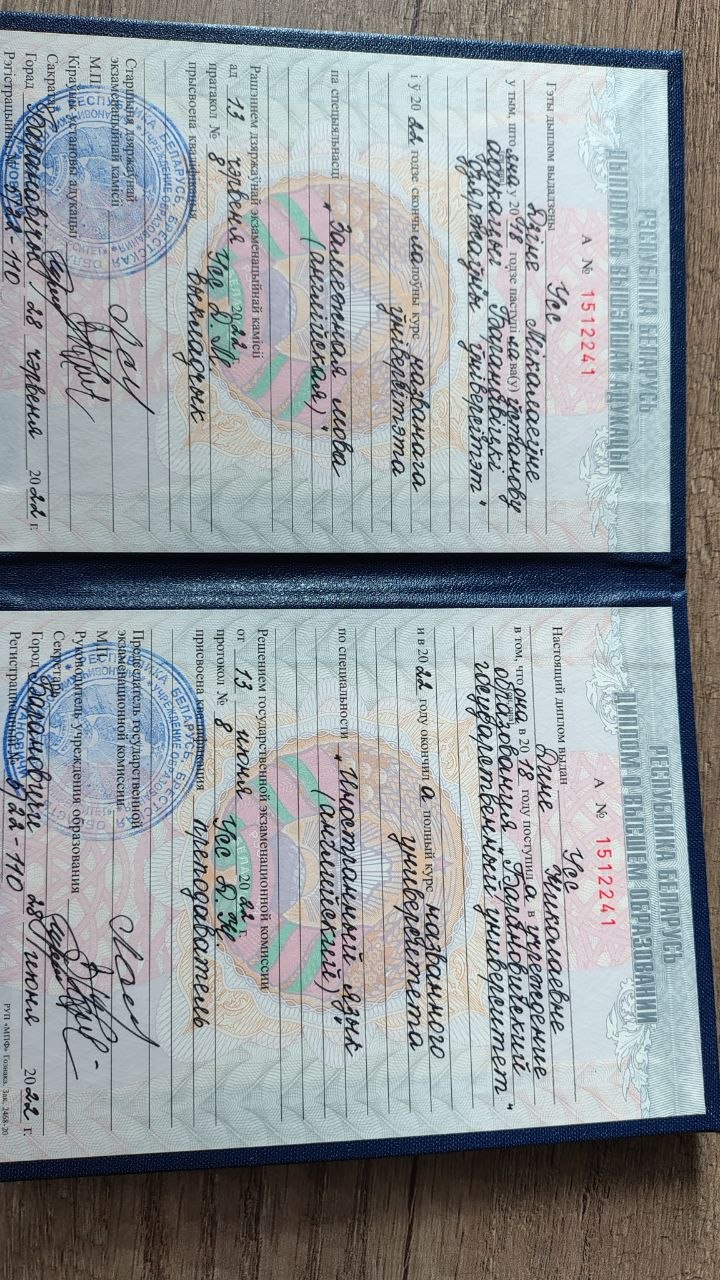 РЭСПУБЛІКА БЕЛАРУСЬ
ДЫПЛОМ АБ ВЫШЭЙШАЙ АДУКАЦЫІ
А № 1512241
Гэты дыплом выдадзены Усс
Дзіне Мікалаеўне
у тым, што яна у 2018 годзе паступіла ва(у) установу
адукацыі "Баранавіцкі
дзяржаўны ўніверсітэт"
і ў 2022 годзе скончыла поўны курс названага
ўніверсітэта
па спецыяльнасці "Замежная мова
(англійская)"
Рашэннем дзяржаўнай экзаменацыйнай камісіі
ад 13 чэрвеня 2022
пратакол № 8 Усс Д. М.
прысвоена кваліфікацыя выкладчык
Старшыня дзяржаўнай
экзаменацыйнай камісіі
М.П.
Кіраўнік установы адукацыі
Сакратар
Горад Баранавічы, 28 чэрвеня 2022 г.
Рэгістрацыйны № 22-110
РЕСПУБЛИКА БЕЛАРУСЬ
ДИПЛОМ О ВЫСШЕМ ОБРАЗОВАНИИ
А № 1512241
Настоящий диплом выдан Усс
Дине Николаевне
в том, что она в 2018 году поступила в учреждение
образования "Барановичский
государственный университет"
и в 2022 году окончила полный курс названного
университета
по специальности "Иностранный язык
(английский)"
Решением государственной экзаменационной комиссии
от 13 июня 2022 г.
протокол № 8 Усс Д. Н.
присвоена квалификация преподаватель
Председатель государственной
экзаменационной комиссии
М.П.
Руководитель учреждения образования
Секретарь
Город Барановичи 28 июня 2022 г.
Регистрационный № 22-110
РУП «МПФ» Гознака. Зак. 2468-20